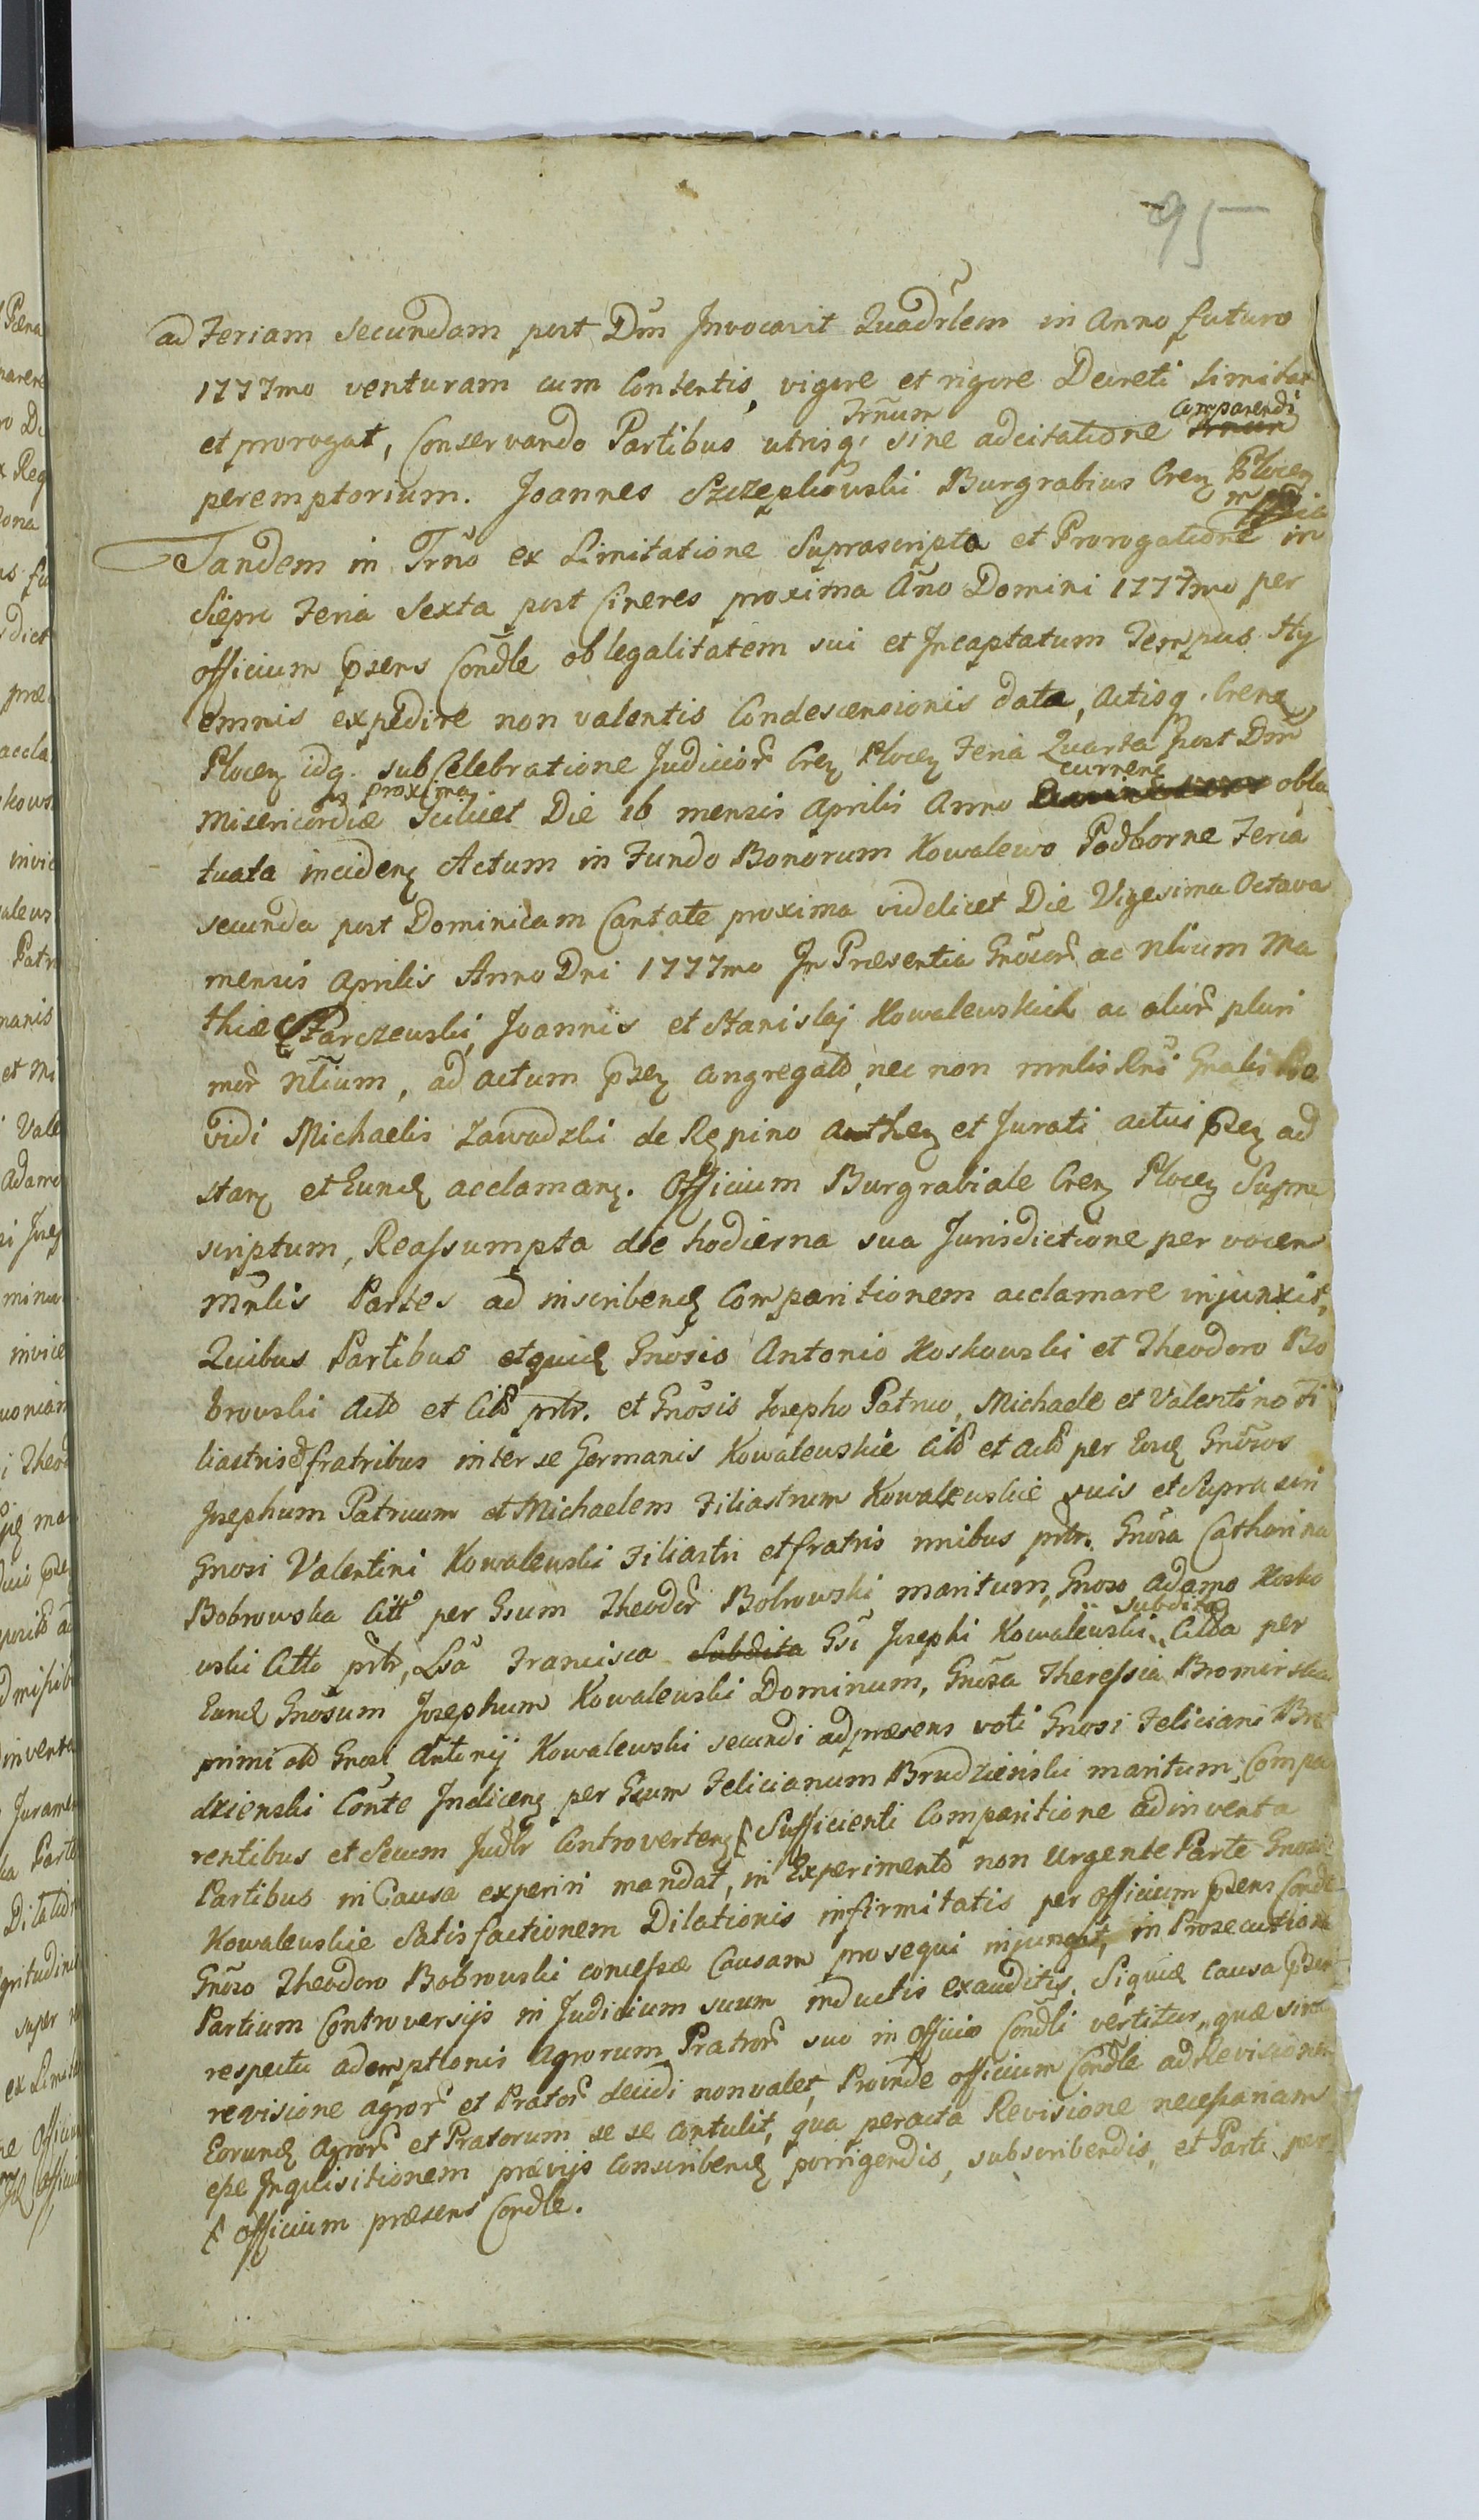 95
ad Feriam Secundam post Dm̃ Invocavit Quadr̃lem in Anno futuro
1777mo venturam cum Contentis, vigore et rigore Decreti limitat
et prorogat, Conservando Partibus utrisq; Trñum sine adcitatione Comparendi
peremptorium. Joannes Szczepkowski Burgrabius Cren Plocen
mpria
Tandem in Trño ex Limitatione Suprascripta et Prorogatione in
Siepre Feria Sexta post Cineres proxima Año Domini 1777mo per
officium psens Condle ob legalitatem sui et Incaptatum Tempus Hy
emnis expedire non valentis Condescensionis data, actisq. Cren
Plocen idq. sub Celebratione Judicior̃ Cren Plocen Feria Quarta post Dm̃
Misericordiæ proxima Scilicet Die 16 mensis Aprilis Anno currenẽ obla
tuata inciden Actum in Fundo Bonorum Kowalewo Podborne Feria
secunda post Dominicam Cantate proxima videlicet Die Vigesima Octava
mensis Aprilis Anno Dni 1777mo In Præsentia Gnosor̃ ac Nlium Ma
thiæ Parczewski, Joannis et Stanislaj Kowalewskich ac alior̃ pluri
mor̃ Nlium, ad actum psen congregatõ, nec non mnlis Rni Gnalis Pro
vidi Michaelis Zawadzki de Repino authen et Jurati actui psen ad
stan et Eund acclaman. Officium Burgrabiale Cren Plocen Supra
scriptum, Reassumpta die hodierna sua Jurisdictione per vocem
Mñlis Partes ad inscribend Comparitionem acclamare injunxit,
Quibus Partibus etquid Gnosis Antonio Koskowski et Theodoro Bo
browski Actõ et Citõ prtr. et Gnosis Josepho Patruo, Michaele et Valentino Fi
liastris fratribus inter se Germanis Kowalewskie Citõ et actõ per Eosd Gnosos
Josephum Patruum et Michaelem Filiastrum Kowalewskie suis et Supra scri
Gnosi Valentini Kowalewski Filiastri et fratris nnibus prtr. Gnosa Catharina
Bobrowska Citt per Gsum Theodor̃ Bobrowski maritum, Gnoso Adamo Kosko
wski Citto prtr, Lsa Francisca Subdita Gsi Josephi Kowalewski subdita Citta per
Eund Gnosum Josephum Kowalewski Dominum, Gnosa Theressia Bromirska
primi olo Gnosi Antonij Kowalewski secundi ad præsens voti Gnosi Feliciani Bru
dzienski Conte Indicen per Gsum Felicianum Brudzienski maritum, Compa
rentibus et Secum Judlr Controverten Sufficienti Comparitione adinventa
Partibus in Causa experiri mandat, in Experimento non Urgente Parte Gnosor
Kowalewskie Satisfactionem Dilationis infirmitatis per officium psens Condle
Gnoso Theodoro Bobrowski concessæ Causam prosequi injungit, in Prosecutione
Partium Controversijs in Judicium suum inductis exauditis, Siquid causa psens
respectu ademptionis Agrorum Prator̃ suo in officio Condli vertitur, quæ sine
revisione agror̃ et Prator̃ decidi nonvalet, Proinde officium Condle ad Revisionem
Eorund Agror̃ et Pratorum se se contulit, qua peracta Revisione necessariam
esse Inquisitionem prævijs Conscribend porrigendis, subscribendis, et Parti per
officium præsens Condle.